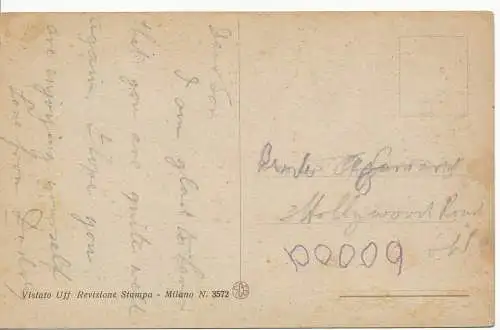 Dear Son
I am glad to hear
that you are quite well
again. I hope you
are enjoying yourself
Love from
Hollywood Road
60000
Vistato Uff Revisione Stampa - Milano N. 3572